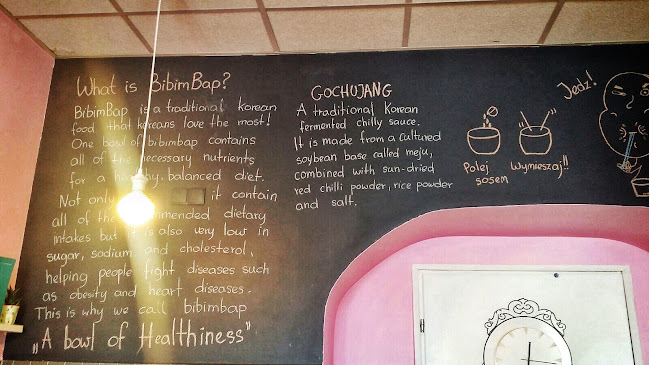 What is BibimBap?
BibimBap is a traditional korean
food that koreans love the most!
One bowl of bibimbap contains
all of the necessary nutrients
for a balanced diet.
Not only it contain
all of the dietary
intakes but is also very low in
sugar, sodium and cholesterol,
helping people fight diseases such
as obesity and heart diseases.
This is why we call bibimbap
„A bowl of Healthiness"
GOCHUJANG
A traditional Korean
fermented chilly sauce.
It is made from a cultured
soybean base called meju,
combined with sun-dried
red chilli powder, rice powder
and salt.
Polej
sosem
Wymieszaj!!
Jedz!